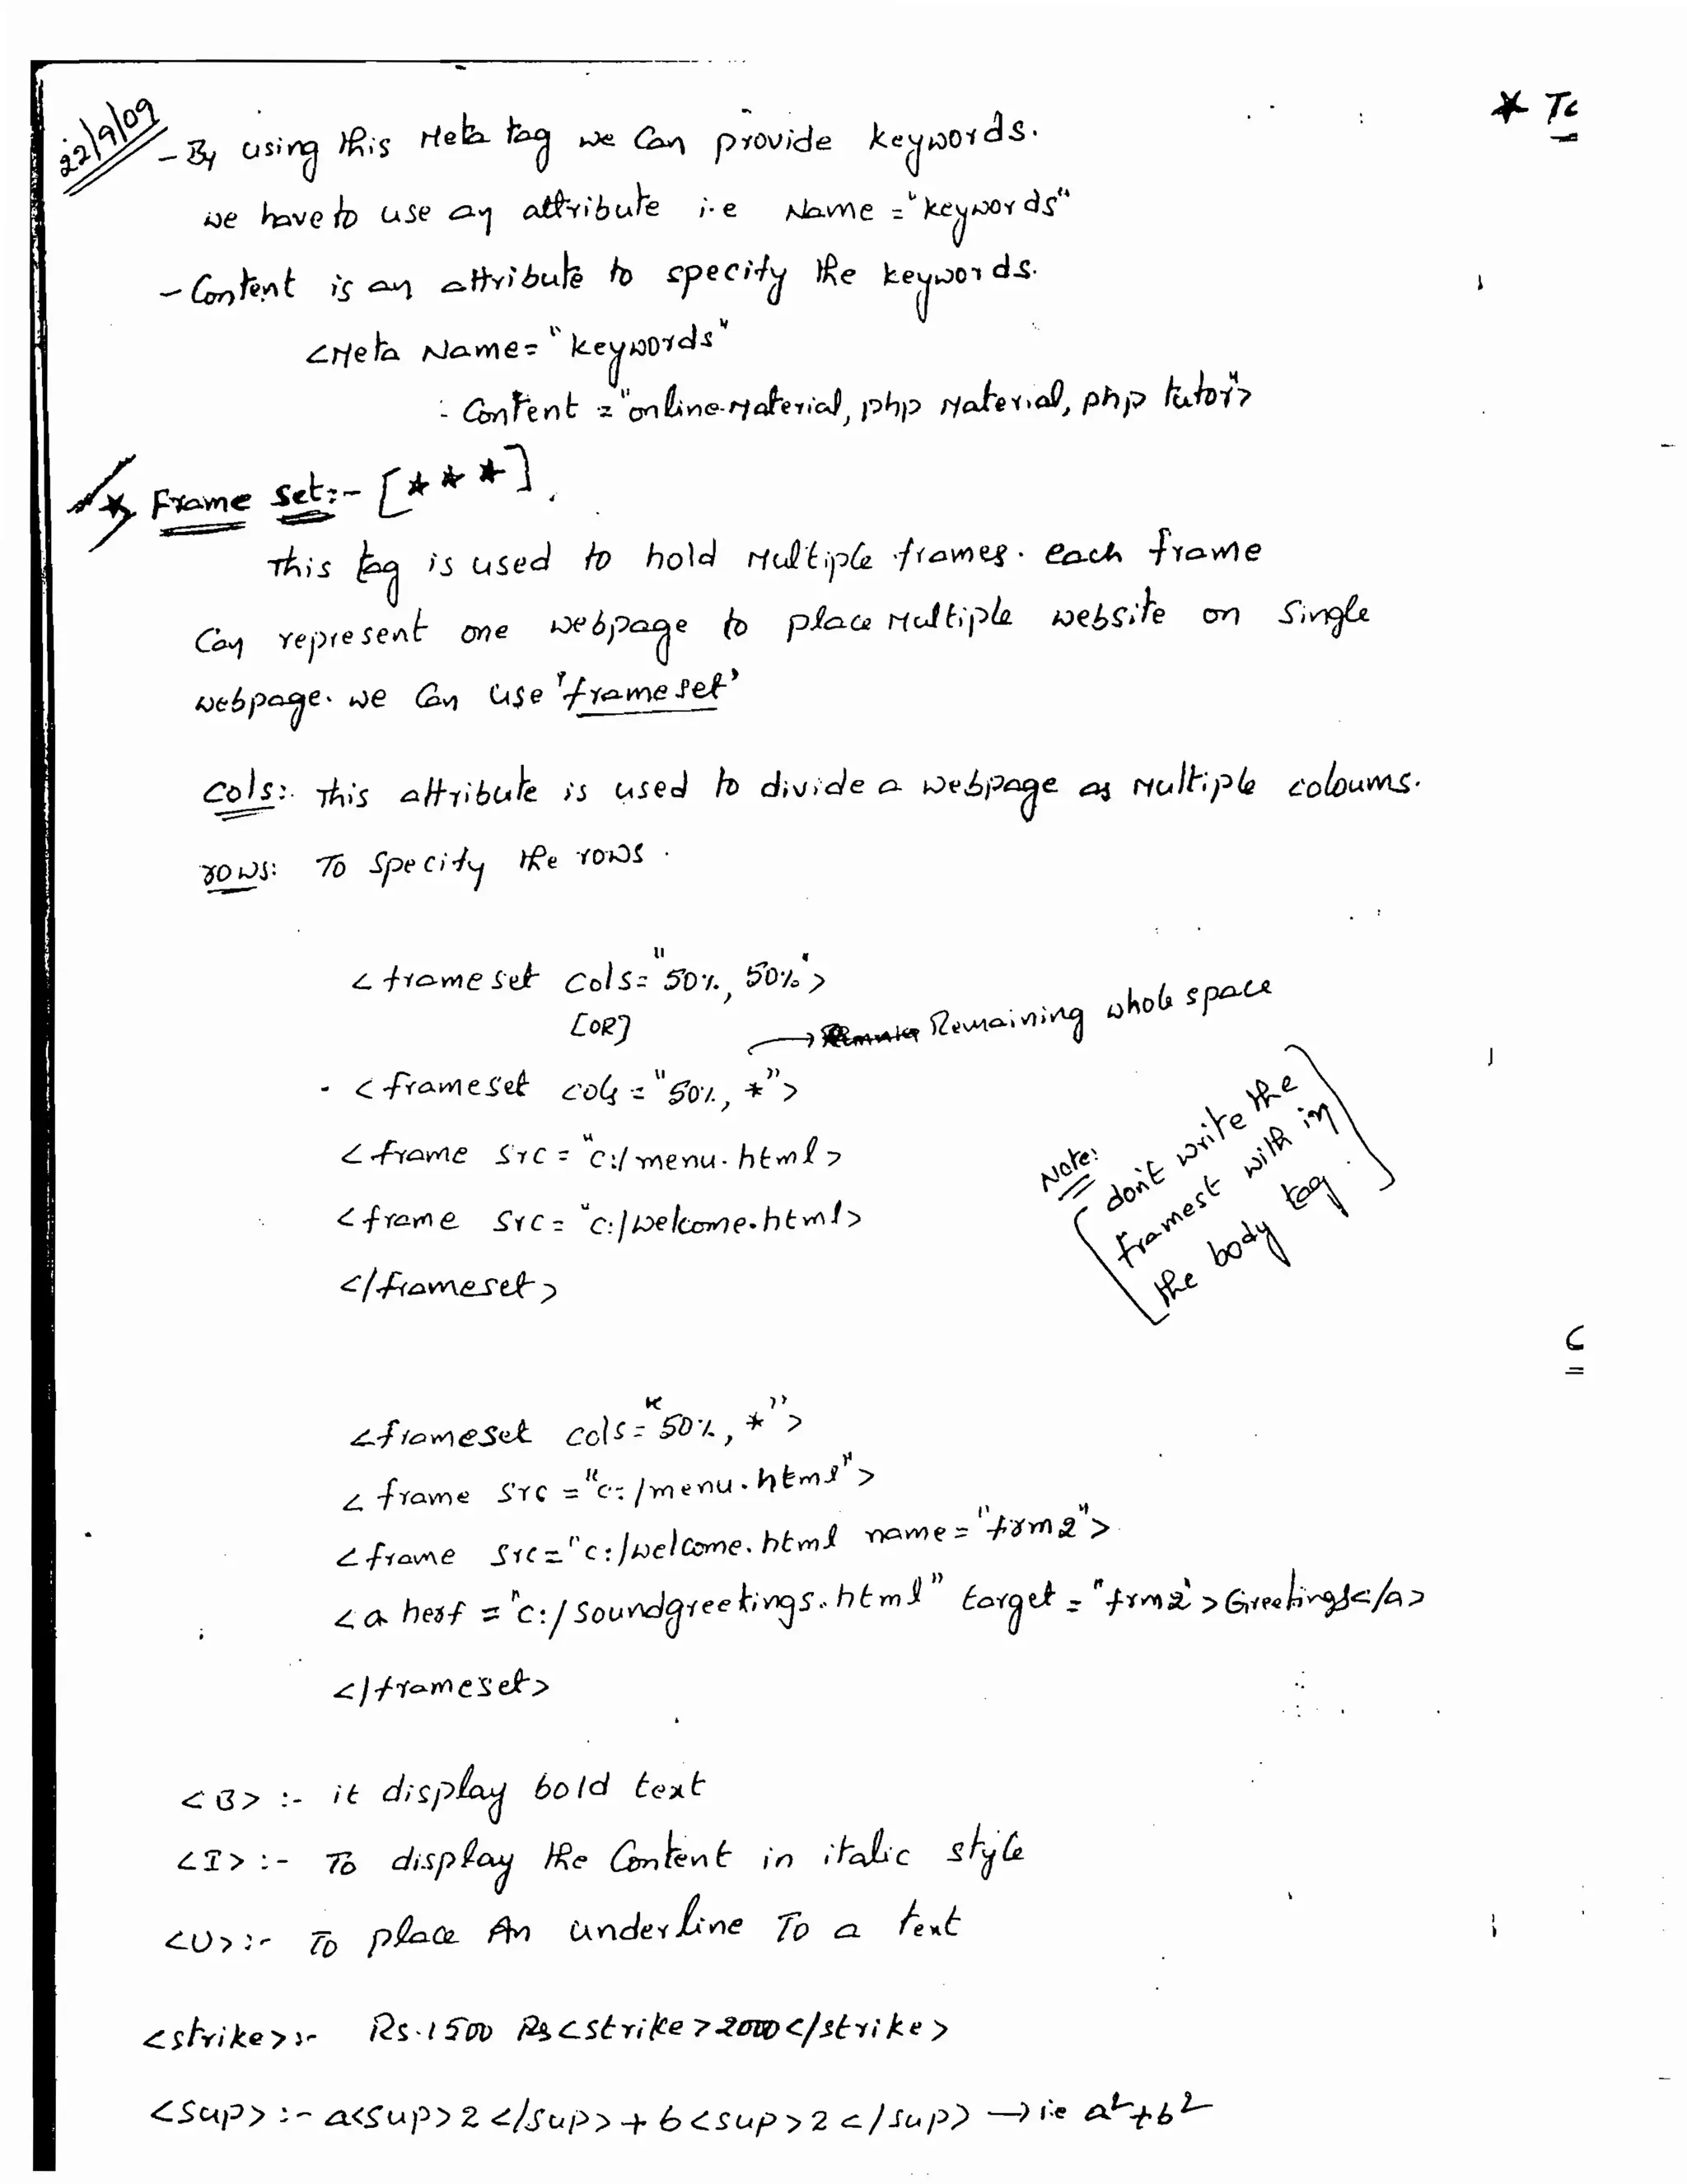 22/9/09
- By using this Meta tag we Can provide keywords.
we have to use an attribute i.e Name = "keywords"
- Content is an attribute to specify the keywords.
<Meta Name= "keywords"
Content = "online-Material, php Material, php tutor">
* Frame Set:- [***]
This tag is used to hold Multiple frames. each frame
Can represent one webpage to place Multiple website on Single
webpage. we Can use 'frameset'
Cols:- This attribute is used to divide a webpage as Multiple coloums.
rows: To Specify the rows.
<frameset cols= "50%, 50%">
[OR]
→ Remaining whole space
<frameset cols = "50%, *">
<frame src = "c:/menu.html>
<frame src = "c:/welcome.html>
</frameset>
Note:
[don't write the
framest with in
the body tag.]
<frameset cols= "50%, *">
<frame src = "c:/menu.html">
<frame src="c:/welcome.html name = "frm2">
<a herf = "c:/soundgreetings.html" target = "frm2'>Greetings</a>
</frameset>
<B> :- it display bold text
<I> :- To display the Content in italic style
<U> :- To place An underline To a text
<strike> :- Rs.1500 Rs<strike>2000</strike>
<sup> :- a<sup>2</sup>+b<sup>2</sup> → i.e a²+b²
* Tc
C